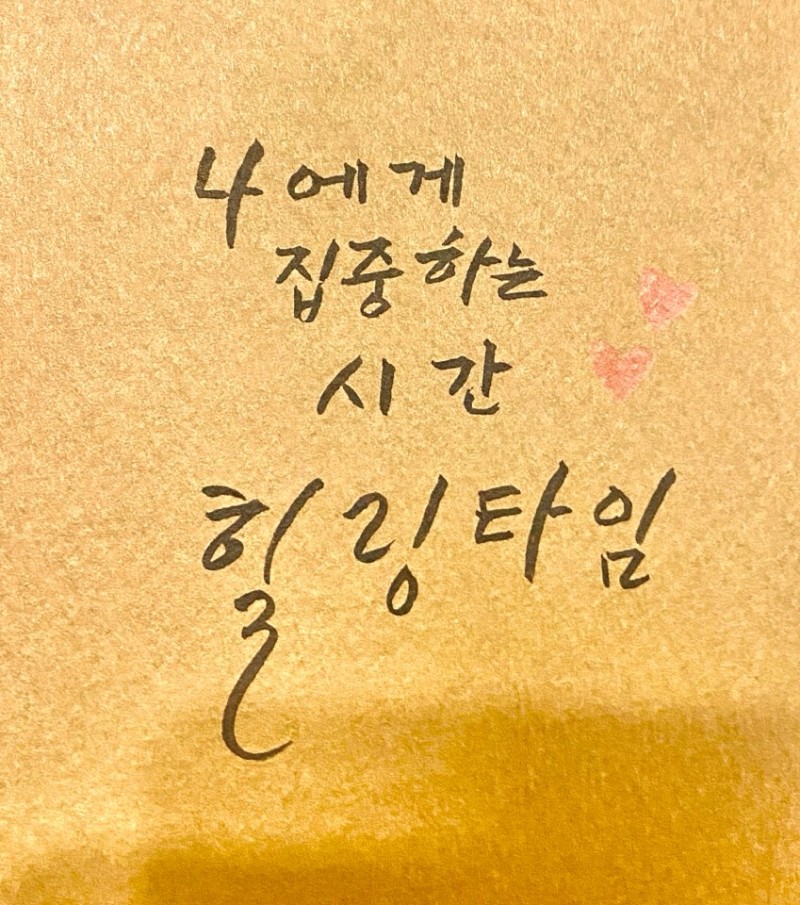 나에게
집중하는
시간
힐링타임